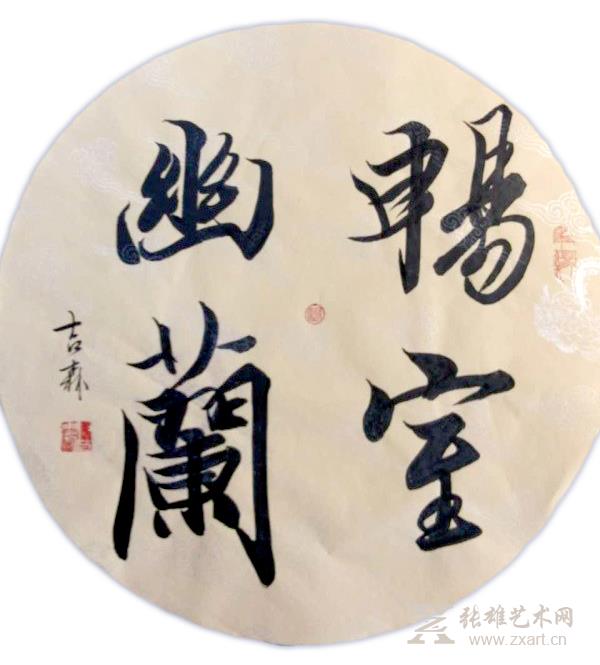 暢室
幽蘭
吉森
张雄艺术网
www.zxart.cn